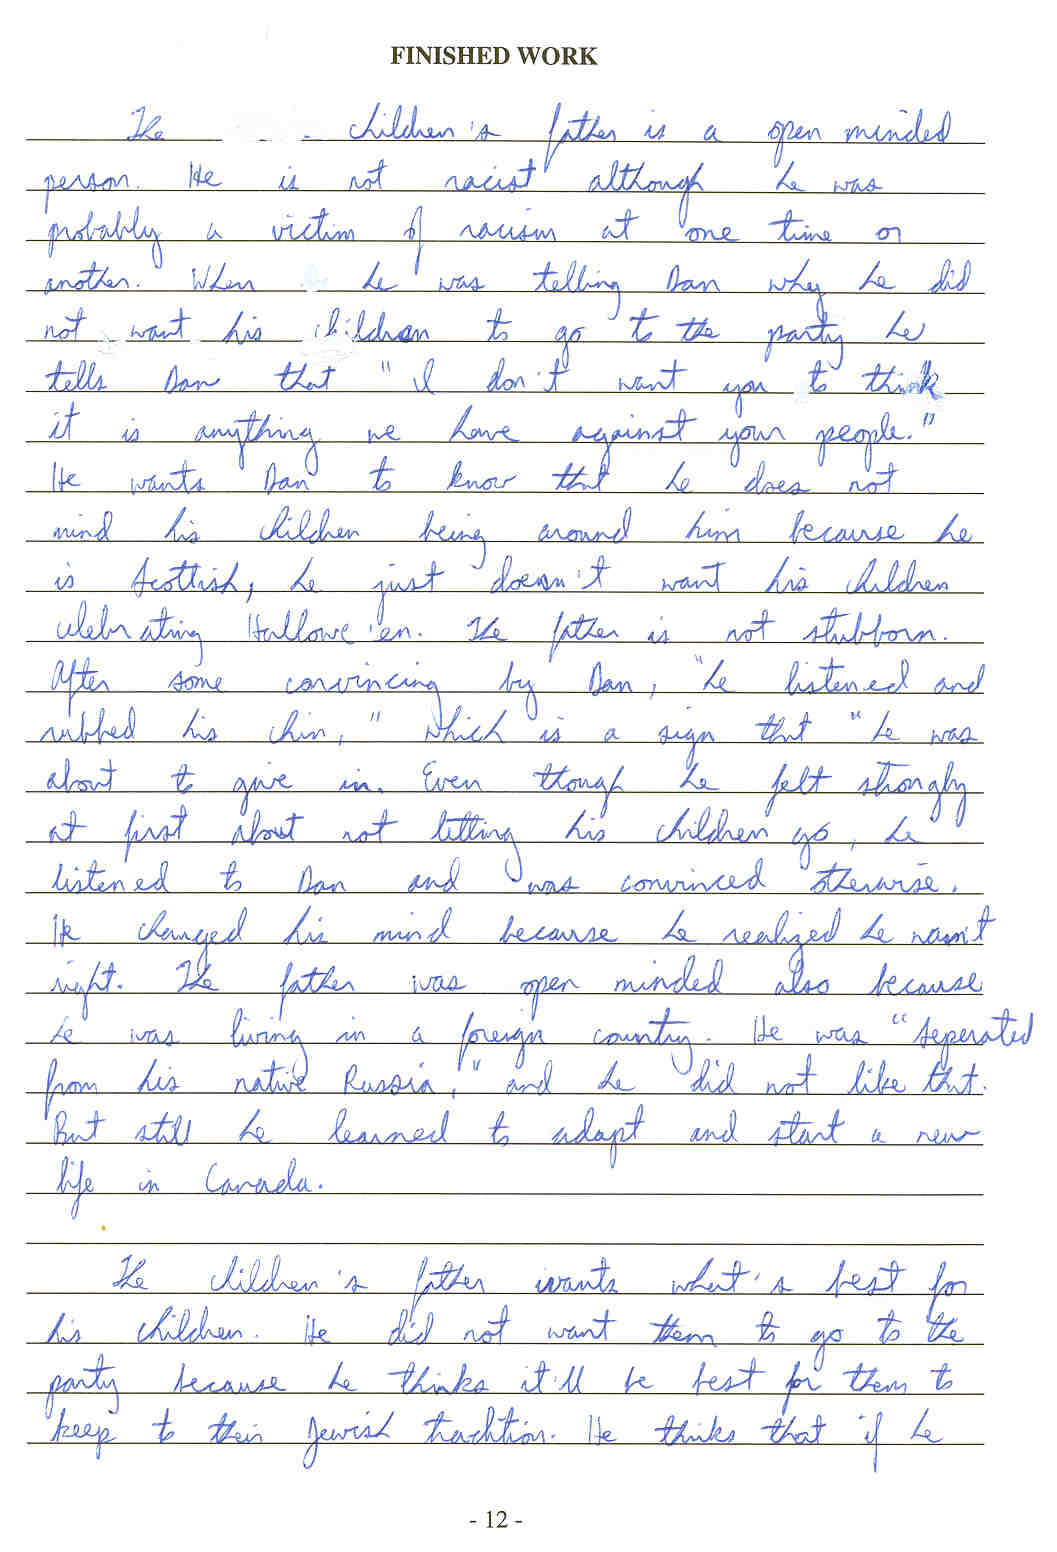 FINISHED WORK
The children's father is a open minded
person. He is not racist although he was
probably a victim of racism at one time or
another. When he was telling Dan why he did
not want his children to go to the party he
tells Dan that "I don't want you to think
it is anything we have against your people."
He wants Dan to know that he does not
mind his children being around him because he
is Scottish, he just doesn't want his children
celebrating Hallowe'en. The father is not stubborn.
After some convincing by Dan, "he listened and
rubbed his chin," which is a sign that "he was
about to give in. Even though he felt strongly
at first about not letting his children go, he
listened to Dan and was convinced otherwise.
He changed his mind because he realized he wasn't
right. The father was open minded also because
he was living in a foreign country. He was "seperated
from his native Russia," and he did not like that.
But still he learned to adapt and start a new
life in Canada.
The children's father wants what's best for
his children. He did not want them to go to the
party because he thinks it'll be best for them to
keep to their Jewish tradition. He thinks that if he
- 12 -